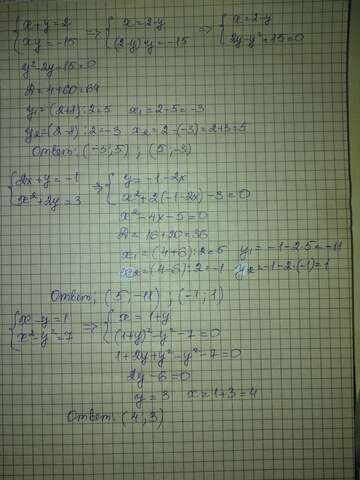 {x+y=2 => {x=2-y => {x=2-y
{xy=-15 {(2-y)·y=-15 {2y-y²+15=0
y²-2y-15=0
D=4+60=64
y₁=(2+8):2=5 x₁=2-5=-3
y₂=(2-8):2=-3 x₂=2-(-3)=2+3=5
Ответ: (-3;5) ; (5;-3)
{2x+y=-1 => {y=-1-2x
{x²+2y=3 {x²-2(-1-2x)-3=0
x²-4x-5=0
D=16+20=36
x₁=(4+6):2=5 y₁=-1-2·5=-11
x₂=(4-6):2=-1 y₂=-1-2·(-1)=1
Ответ: (5;-11) ; (-1;1)
{x-y=1 => {x=1+y
{x²-y²=7 {(1+y)²-y²-7=0
1+2y+y²-y²-7=0
2y-6=0
y=3 x=1+3=4
Ответ: (4;3)